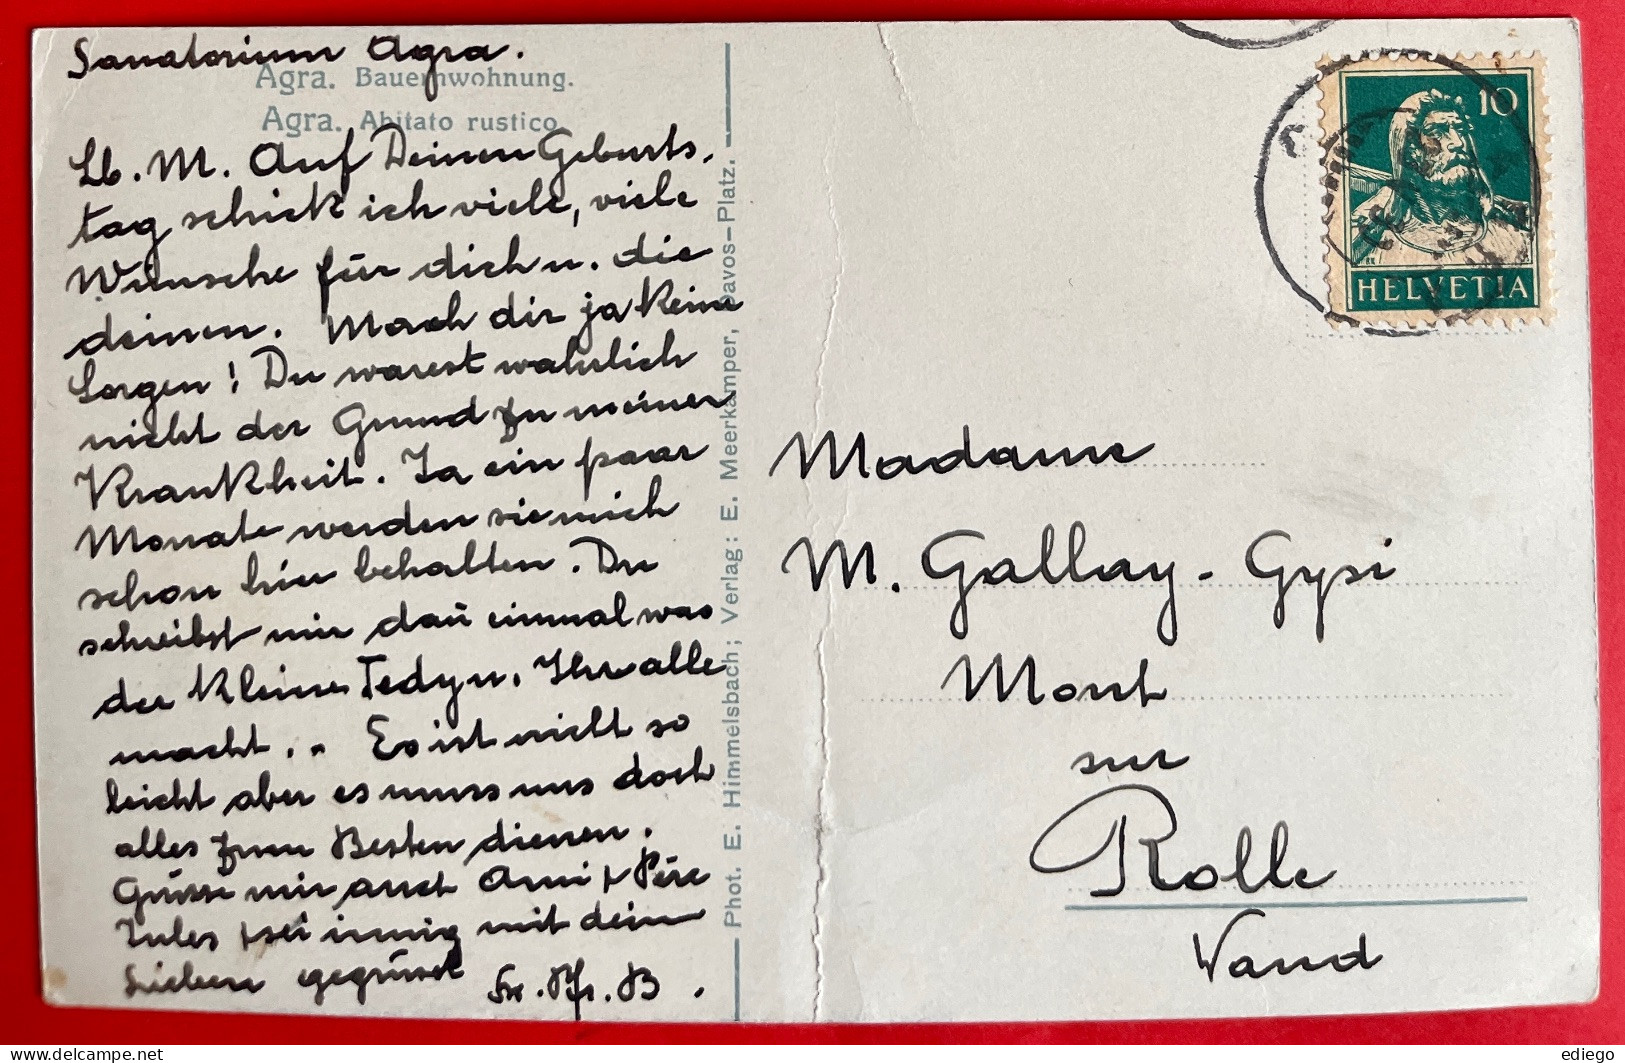 Sanatorium Agra.
Agra. Bauernwohnung.
Agra. Abitato rustico.
Lb. M. Auf Deinen Geburts,
tag schick ich viele, viele
Wünsche für dich u. die
deinen. Mach dir ja keine
Sorgen! Du warest wahrlich
nicht der Grund zu meiner
Krankheit. Ja ein paar
Monate werden sie mich
schon hier behalten. Du
schreibst mir dañ einmal was
der kleine Tedy u. Ihr alle
macht. .. Es ist nicht so
leicht aber es muss uns doch
alles zum Besten dienen.
Grüsse mir auch Ami + Père
Jules + sei innig mit dein
Lieben gegrüsst
B.
Phot. E. Himmelsbach; Verlag: E. Meerkämper, Davos-Platz.
10
HELVETIA
Madame
M. Gallay-Gysi
Mont
sur
Rolle
Vaud
ediego